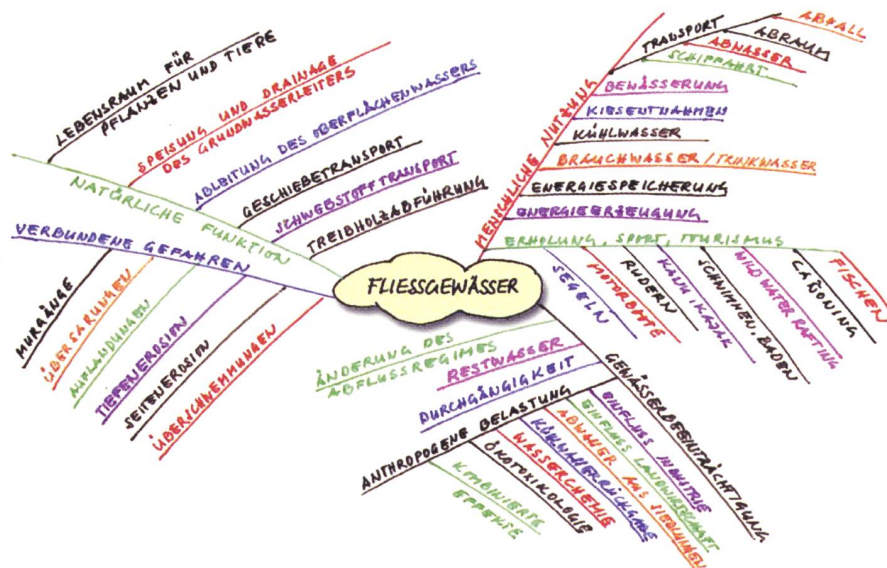 FLIESSGEWÄSSER
NATÜRLICHE FUNKTION
LEBENSRAUM FÜR
PFLANZEN UND TIERE
SPEISUNG UND DRAINAGE
DES GRUNDWASSERLEITERS
ABLEITUNG DES OBERFLÄCHENWASSERS
GESCHIEBETRANSPORT
SCHWEBSTOFFTRANSPORT
TREIBHOLZABFÜHRUNG
VERBUNDENE GEFAHREN
MURGÄNGE
ÜBERSARUNGEN
AUFLANDUNGEN
TIEFENEROSION
SEITENEROSION
ÜBERSCHWEMMUNGEN
MENSCHLICHE NUTZUNG
TRANSPORT
ABFALL
ABRAUM
ABWASSER
SCHIFFAHRT
BEWÄSSERUNG
KIESENTNAHMEN
KÜHLWASSER
BRAUCHWASSER/TRINKWASSER
ENERGIESPEICHERUNG
ENERGIEERZEUGUNG
ERHOLUNG, SPORT, TOURISMUS
SEGELN
MOTORBOOTE
RUDERN
KANU/KAJAK
SCHWIMMEN, BADEN
WILDWATER RAFTING
CANONING
FISCHEN
GEWÄSSERBEEINTRÄCHTIGUNG
ÄNDERUNG DES
ABFLUSSREGIMES
RESTWASSER
DURCHGÄNGIGKEIT
ANTHROPOGENE BELASTUNG
EINFLUSS INDUSTRIE
EINFLUSS LANDWIRTSCHAFT
ABWASSER AUS SIEDLUNGEN
KÜHLWASSERRÜCKGABE
WASSERCHEMIE
ÖKOTOXIKOLOGIE
KOMBINIERTE
EFFEKTE